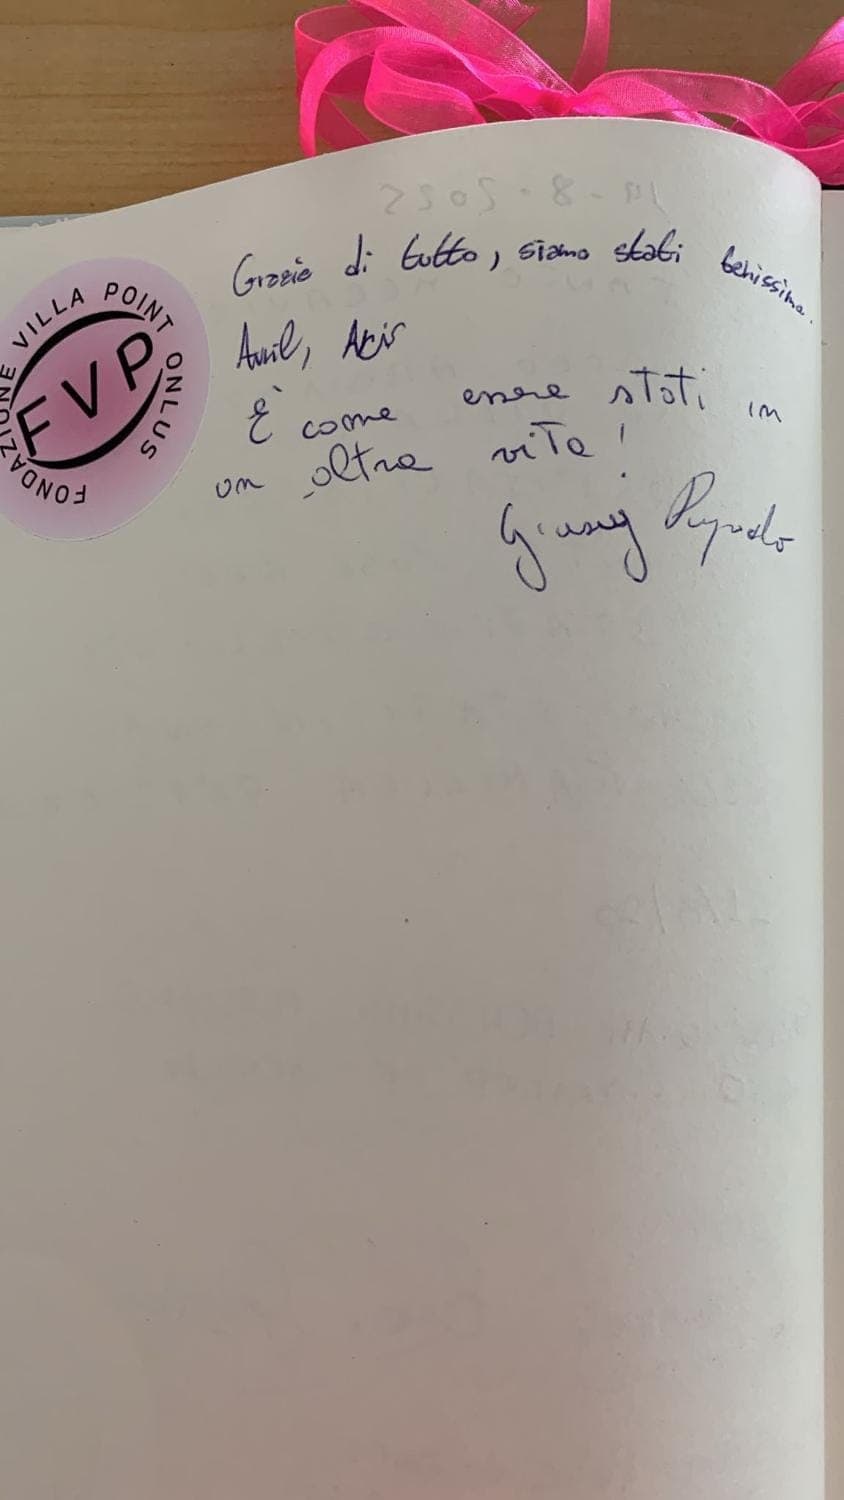 FONDAZIONE VILLA POINT ONLUS
FVP
Grazie di tutto, siamo stati benissimo.
Avril,
È come essere stati in
un altra vita!